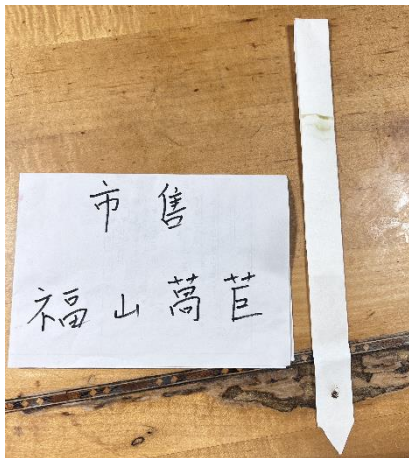 市售
福山萵苣